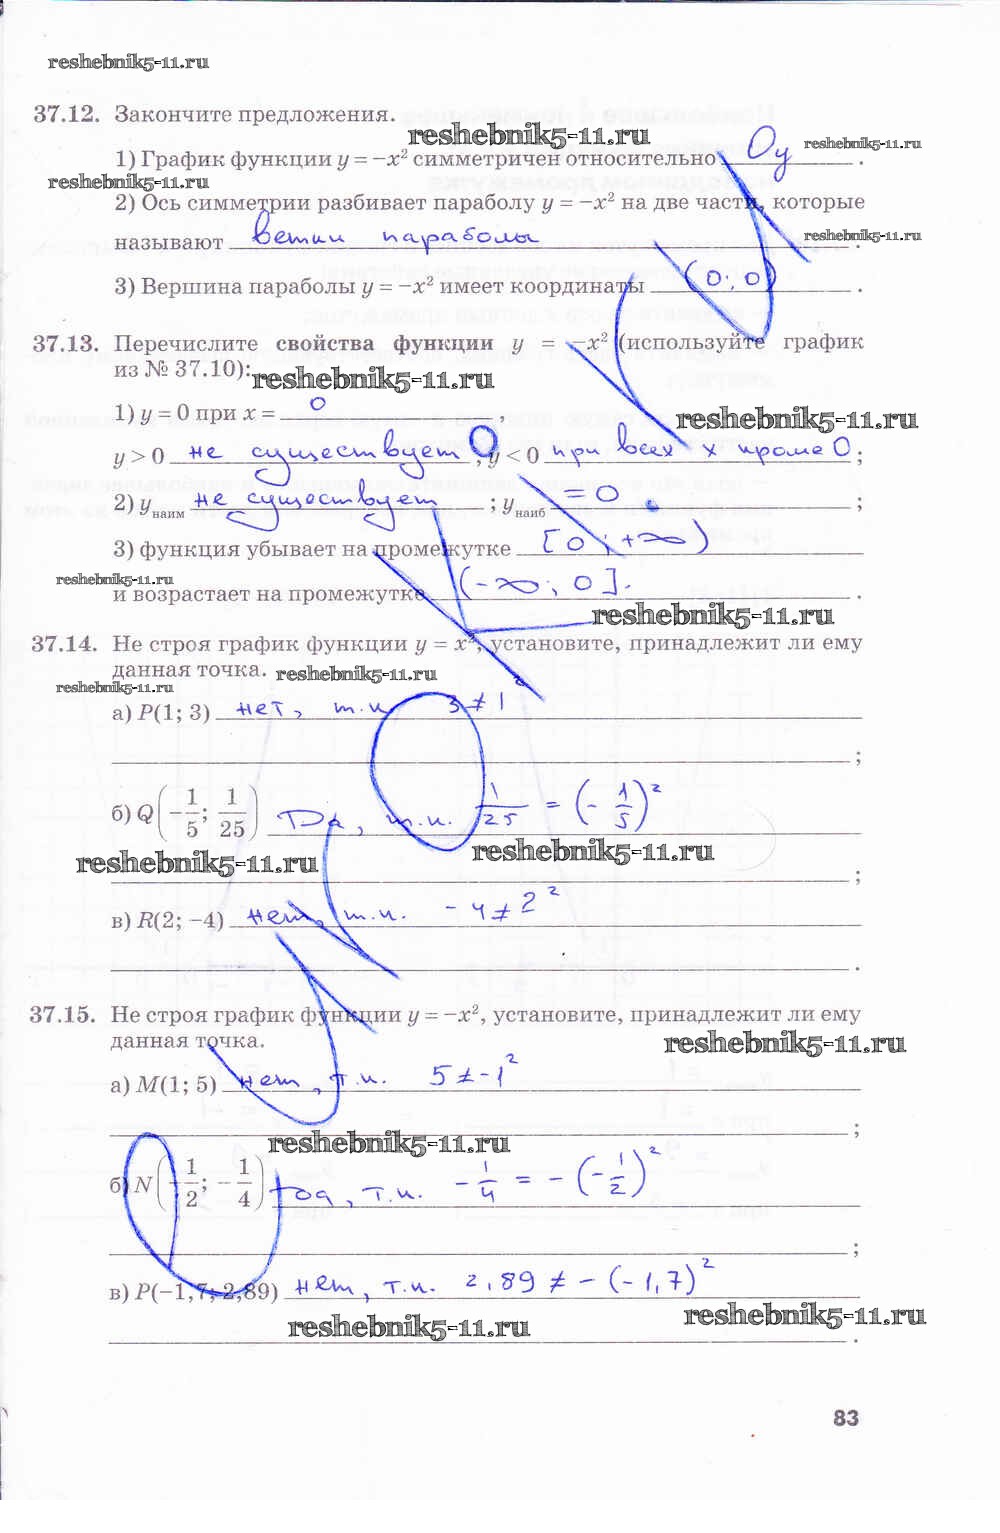 reshebnik5-11.ru
37.12. Закончите предложения.
reshebnik5-11.ru
1) График функции y = −x² симметричен относительно Oy .
reshebnik5-11.ru
reshebnik5-11.ru
2) Ось симметрии разбивает параболу y = −x² на две части, которые
называют ветки параболы .
reshebnik5-11.ru
3) Вершина параболы y = −x² имеет координаты (0; 0) .
37.13. Перечислите свойства функции y = −x² (используйте график
из № 37.10):
reshebnik5-11.ru
1) y = 0 при x = 0 ,
reshebnik5-11.ru
y > 0 не существует ; y < 0 при всех x кроме 0 ;
2) yнаим не существует ; yнаиб = 0 ;
3) функция убывает на промежутке [0; +∞)
reshebnik5-11.ru
и возрастает на промежутке (−∞; 0] .
reshebnik5-11.ru
37.14. Не строя график функции y = x², установите, принадлежит ли ему
данная точка.
reshebnik5-11.ru
reshebnik5-11.ru
а) P(1; 3) нет, т.к. 3 ≠ 1²
;
б) Q(−1/5; 1/25) Да, т.к. 1/25 = (−1/5)²
reshebnik5-11.ru
reshebnik5-11.ru
;
в) R(2; −4) нет, т.к. −4 ≠ 2²
.
37.15. Не строя график функции y = −x², установите, принадлежит ли ему
данная точка.
reshebnik5-11.ru
а) M(1; 5) нет, т.к. 5 ≠ −1²
;
reshebnik5-11.ru
б) N(−1/2; −1/4) да, т.к. −1/4 = −(−1/2)²
;
в) P(−1,7; 2,89) нет, т.к. 2,89 ≠ −(−1,7)²
reshebnik5-11.ru
reshebnik5-11.ru
.
83